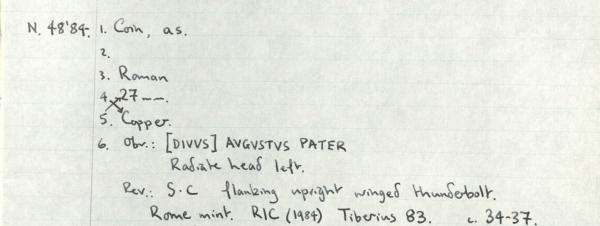 N. 48'84. 1. Coin, as.
2.
3. Roman
4. 27 --.
5. Copper.
6. Obv.: [DIVVS] AVGVSTVS PATER
Radiate head left.
Rev.: S·C flanking upright winged thunderbolt.
Rome mint. RIC (1984) Tiberius 83. c. 34-37.